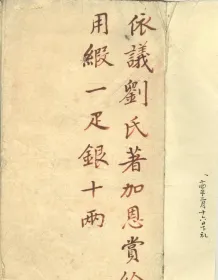 依議劉氏著加恩賞給
用緞一疋銀十兩